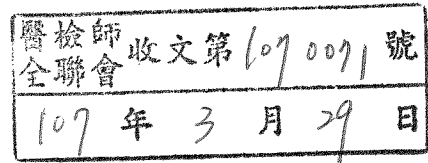 醫檢師
全聯會
收文第1070071號
107年3月29日